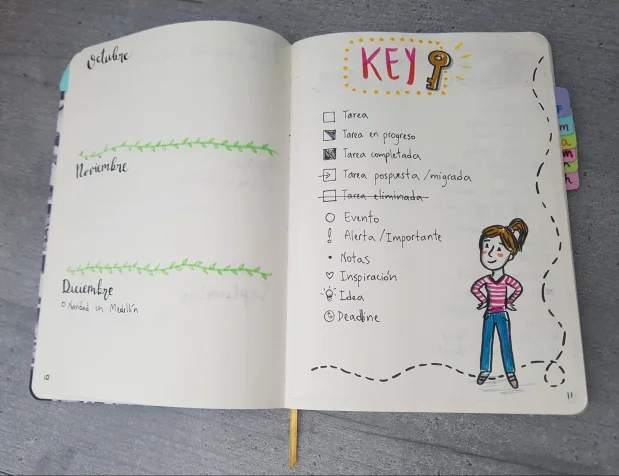 Octubre
Noviembre
Diciembre
Navidad en Medellín
10
KEY
Tarea
Tarea en progreso
Tarea completada
Tarea pospuesta / migrada
Tarea eliminada
Evento
! Alerta / Importante
Notas
Inspiración
Idea
Deadline
11
m
a
m
h